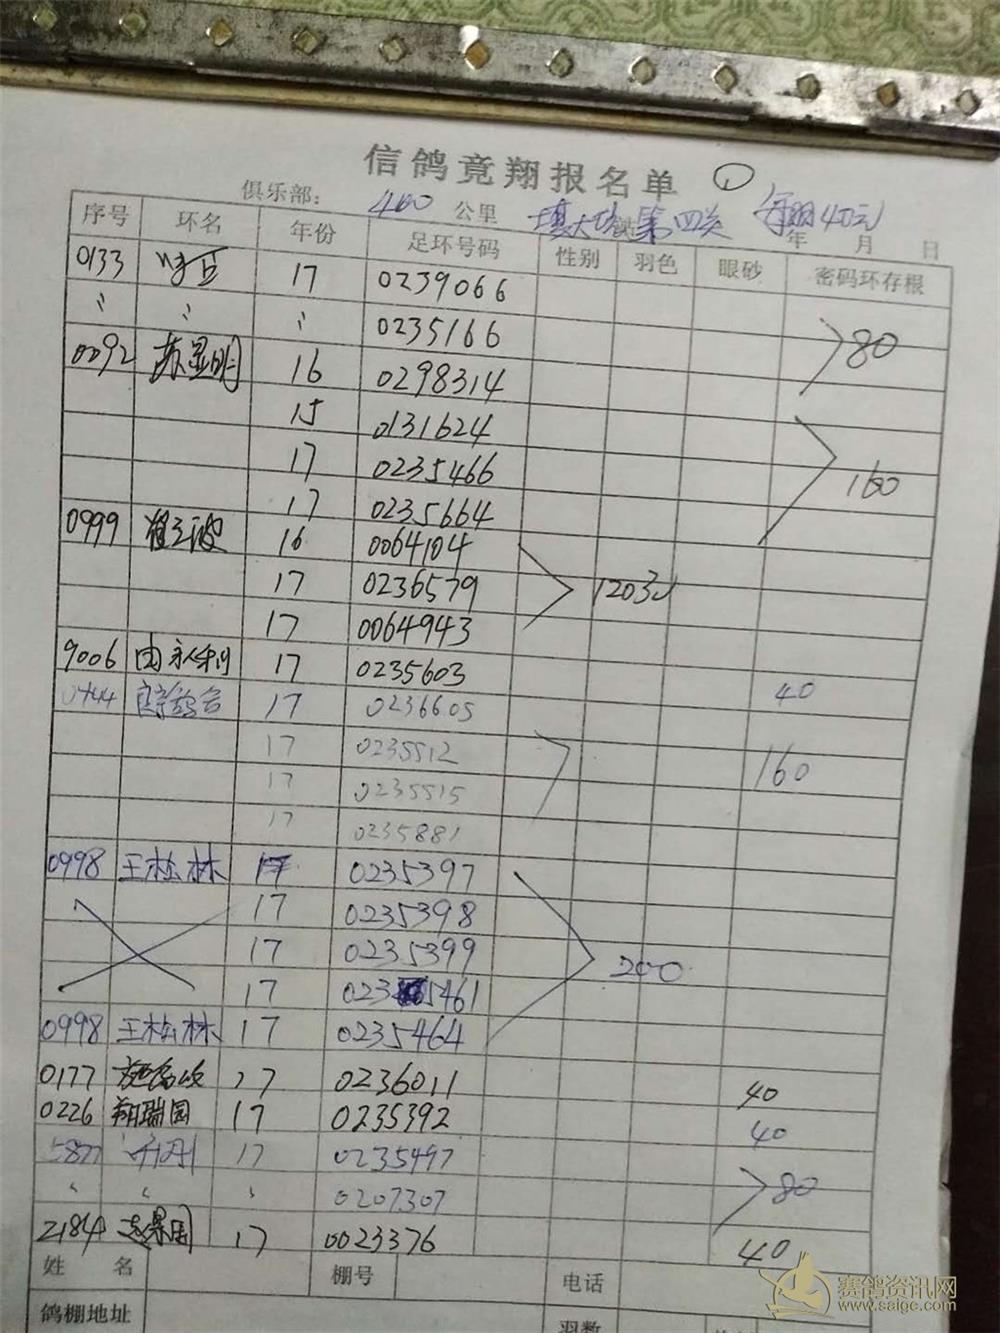 信鸽竟翔报名单 ①
俱乐部: 460 公里 第四关 每羽40元 年 月 日
序号 环名 年份 足环号码 性别 羽色 眼砂 密码环存根
0133 17 0239066
〃 〃 〃 0235166 80
0092 苏显明 16 0298314
15 0131624
17 0235466 160
17 0235664
0999 16 0064104
17 0236579 120
17 0064943
9006 由永利 17 0235603 40
0744 17 0236605
17 0235512 160
17 0235515
17 0235881
0998 王松林 17 0235397
17 0235398
17 0235399 200
17 0235461
0998 王松林 17 0235464
0177 17 0236011 40
0226 翔瑞园 17 0235392 40
5877 17 0235497
〃 〃 〃 0207307 80
2184 17 0023376 40
姓 名 棚号 电话
鸽棚地址 羽数
赛鸽资讯网
www.saige.com